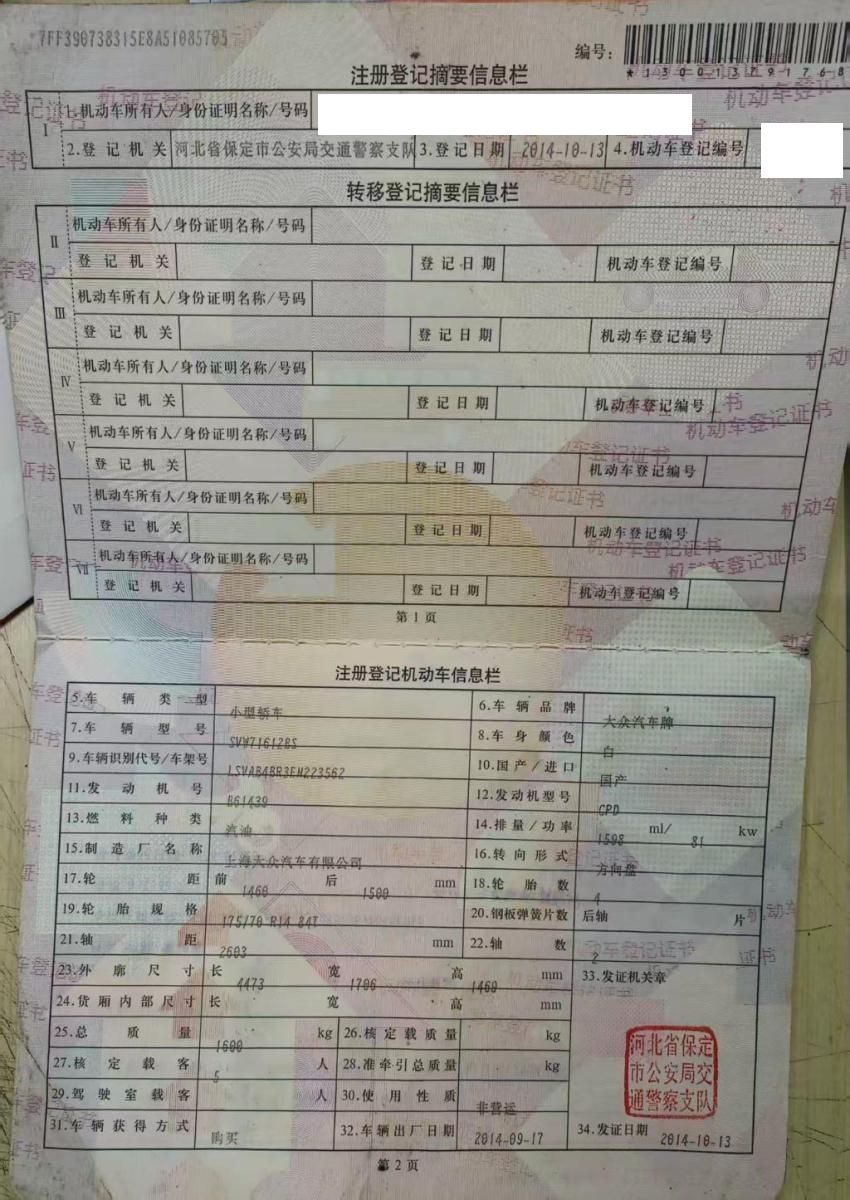 7FF390738315E8A51085705
编号：
*130013791768
注册登记摘要信息栏
I 1.机动车所有人/身份证明名称/号码
2.登记机关 河北省保定市公安局交通警察支队 3.登记日期 2014-10-13 4.机动车登记编号
转移登记摘要信息栏
II 机动车所有人/身份证明名称/号码
登记机关 登记日期 机动车登记编号
III 机动车所有人/身份证明名称/号码
登记机关 登记日期 机动车登记编号
IV 机动车所有人/身份证明名称/号码
登记机关 登记日期 机动车登记编号
V 机动车所有人/身份证明名称/号码
登记机关 登记日期 机动车登记编号
VI 机动车所有人/身份证明名称/号码
登记机关 登记日期 机动车登记编号
VII 机动车所有人/身份证明名称/号码
登记机关 登记日期 机动车登记编号
第1页
注册登记机动车信息栏
5.车辆类型 小型轿车 6.车辆品牌 大众汽车牌
7.车辆型号 SVW71612BS 8.车身颜色 白
9.车辆识别代号/车架号 LSVAB4BR3EN223562 10.国产/进口 国产
11.发动机号 B61439 12.发动机型号 CPD
13.燃料种类 汽油 14.排量/功率 1598 ml/ 81 kw
15.制造厂名称 上海大众汽车有限公司 16.转向形式 方向盘
17.轮距 前 1460 后 1500 mm 18.轮胎数 4
19.轮胎规格 175/70 R14 84T 20.钢板弹簧片数 后轴 片
21.轴距 2603 mm 22.轴数 2
23.外廓尺寸 长 4473 宽 1706 高 1469 mm 33.发证机关章
24.货厢内部尺寸 长 宽 高 mm
25.总质量 1600 kg 26.核定载质量 kg
27.核定载客 5 人 28.准牵引总质量 kg
29.驾驶室载客 人 30.使用性质 非营运
河北省保定
市公安局交
通警察支队
31.车辆获得方式 购买 32.车辆出厂日期 2014-09-17 34.发证日期 2014-10-13
第2页